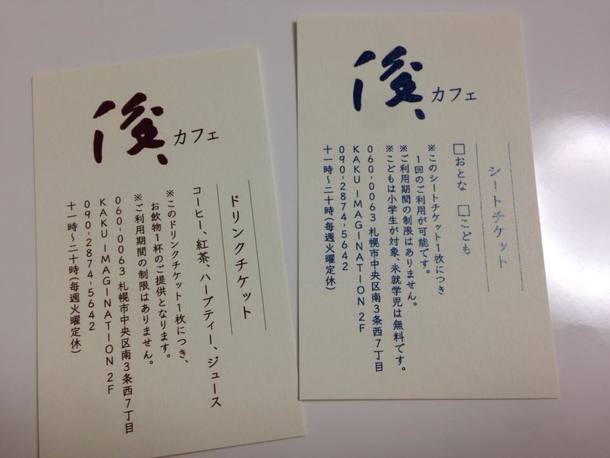 俊、カフェ
ドリンクチケット
コーヒー、紅茶、ハーブティー、ジュース
※このドリンクチケット1枚につき、
お飲物1杯のご提供となります。
※ご利用期間の制限はありません。
060-0063 札幌市中央区南3条西7丁目
KAKU IMAGINATION 2F
090-2874-5642
十一時〜二十時(毎週火曜定休)
俊、カフェ
シートチケット
□おとな □こども
※このシートチケット1枚につき
1回のご利用が可能です。
※ご利用期間の制限はありません。
※こどもは小学生が対象、未就学児は無料です。
060-0063 札幌市中央区南3条西7丁目
KAKU IMAGINATION 2F
090-2874-5642
十一時〜二十時(毎週火曜定休)